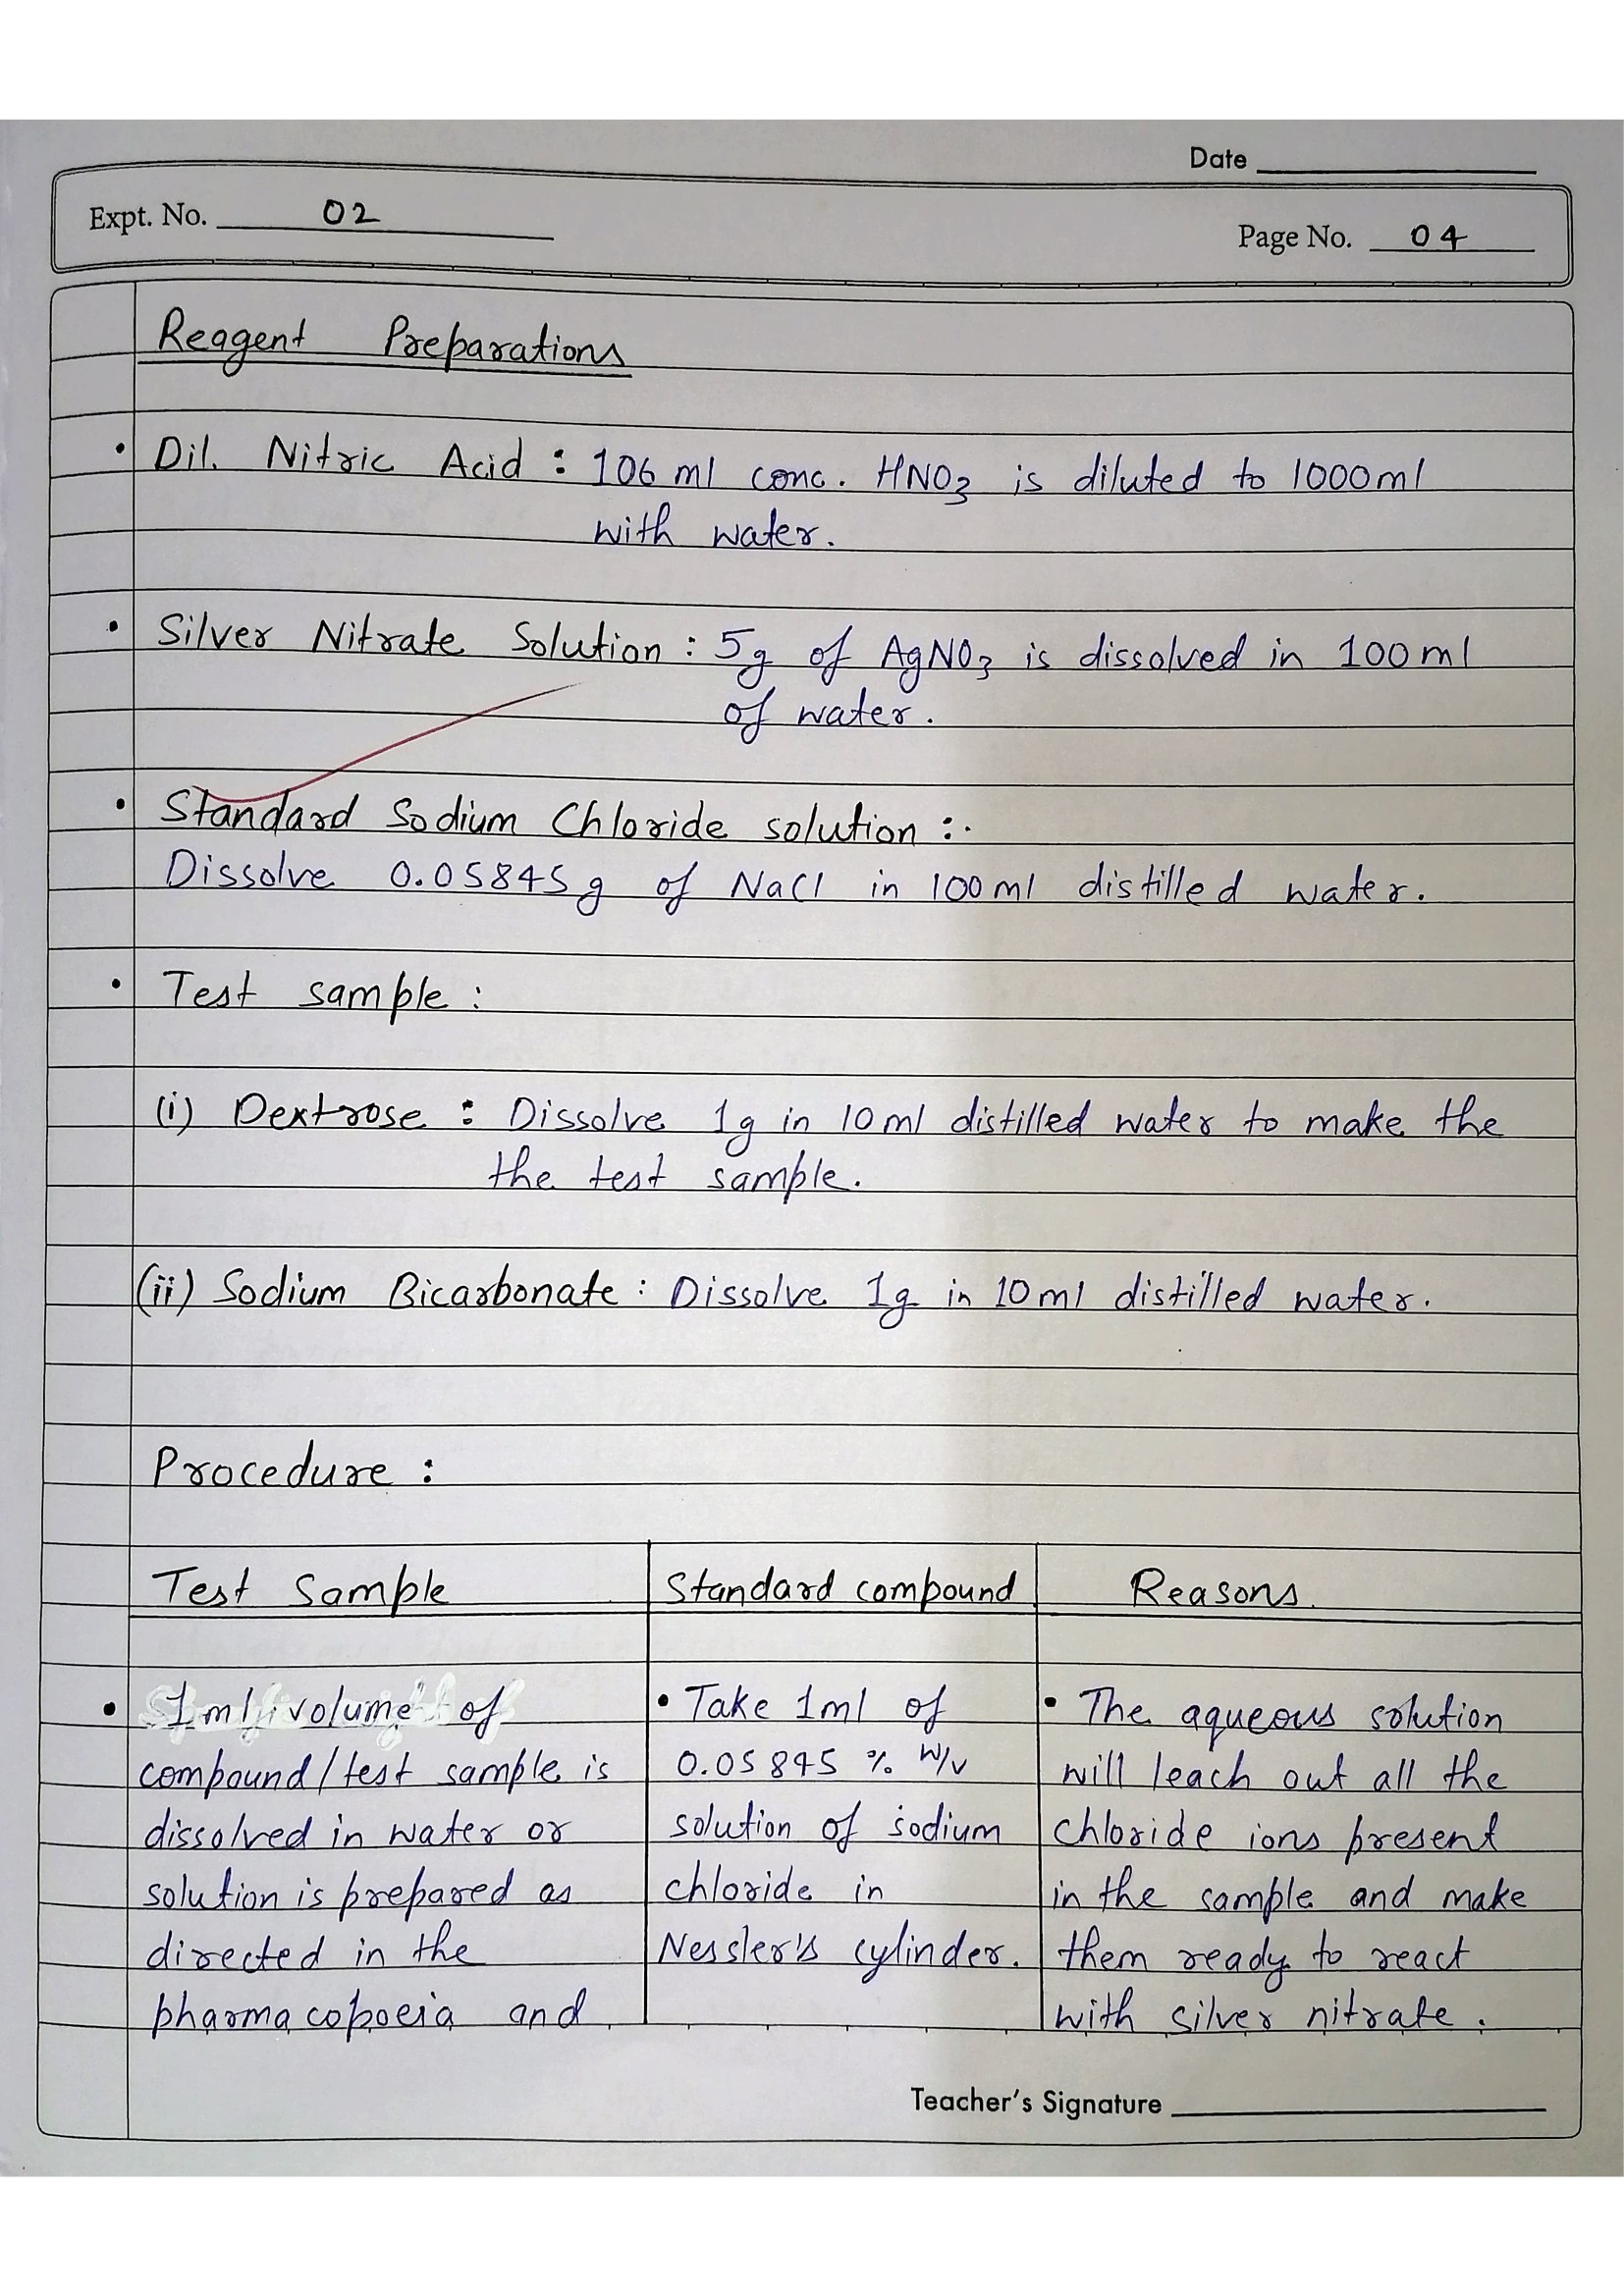 Date
Expt. No. 02
Page No. 04
Reagent Preparations
• Dil. Nitric Acid : 106 ml conc. HNO₃ is diluted to 1000ml
with water.
• Silver Nitrate Solution : 5g of AgNO₃ is dissolved in 100 ml
of water.
• Standard Sodium Chloride solution :.
Dissolve 0.05845g of NaCl in 100ml distilled water.
• Test sample :
(i) Dextrose : Dissolve 1g in 10 ml distilled water to make the
the test sample.
(ii) Sodium Bicarbonate : Dissolve 1g in 10 ml distilled water.
Procedure :
Test Sample
• 1 ml volume of
compound/test sample is
dissolved in water or
solution is prepared as
directed in the
pharmacopoeia and
Standard compound
• Take 1ml of
0.05845 % w/v
solution of sodium
chloride in
Nessler's cylinder.
Reasons.
• The aqueous solution
will leach out all the
chloride ions present
in the sample and make
them ready to react
with silver nitrate.
Teacher's Signature